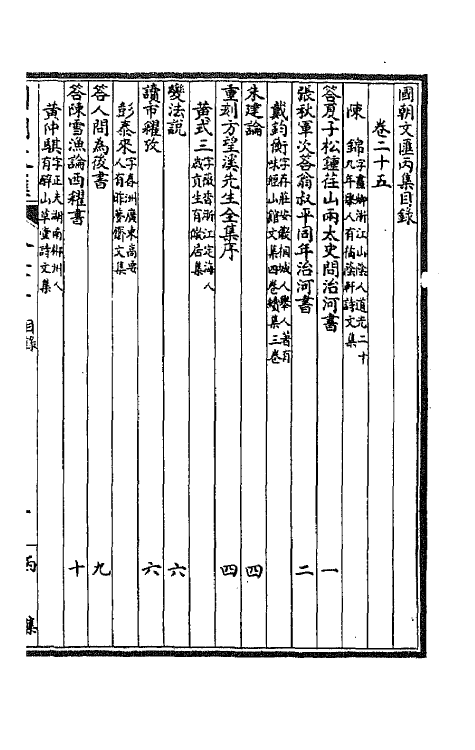 國朝文匯丙集目錄
卷二十五
陳錦 字晝卿浙江山陰人道光二十九年舉人有橘蔭軒詩文集
答夏子松鍾荏山兩太史問治河書 一
張秋軍次答翁叔平同年治河書 二
戴鈞衡 字存莊安徽桐城人舉人著有味經山館文集四卷續集三卷
朱建論 四
重刻方望溪先生全集序 四
黃式三 字薇香浙江定海人歲貢生有儆居集
變法說 六
讀市糴攷 六
彭泰來 字春洲廣東高要人有昨夢齋文集
答人問為後書 九
答陳雪漁論西稷書 十
黃仲騏 字正夫湖南郴州人有醉山草堂詩文集
目錄
一
丙集